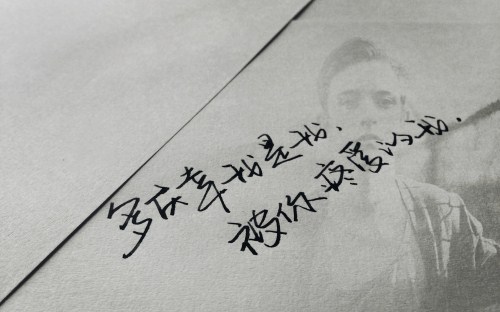 多庆幸我是我.
被你疼爱的我.